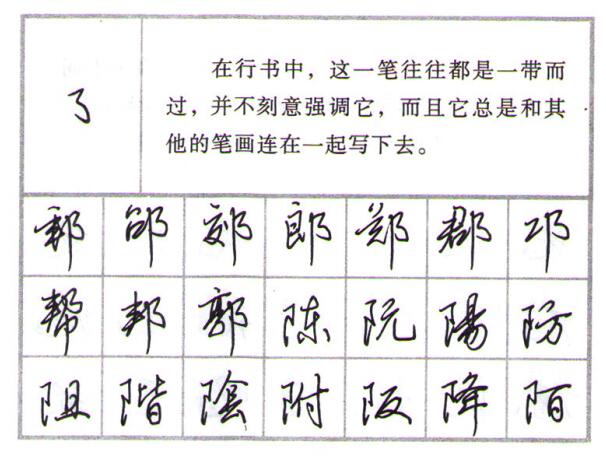 在行书中，这一笔往往都是一带而
过，并不刻意强调它，而且它总是和其
他的笔画连在一起写下去。
郊 郎 郑 郡 邛
帮 邦 郭 陈 阮 陽 防
阻 階 陰 附 阪 降 陌